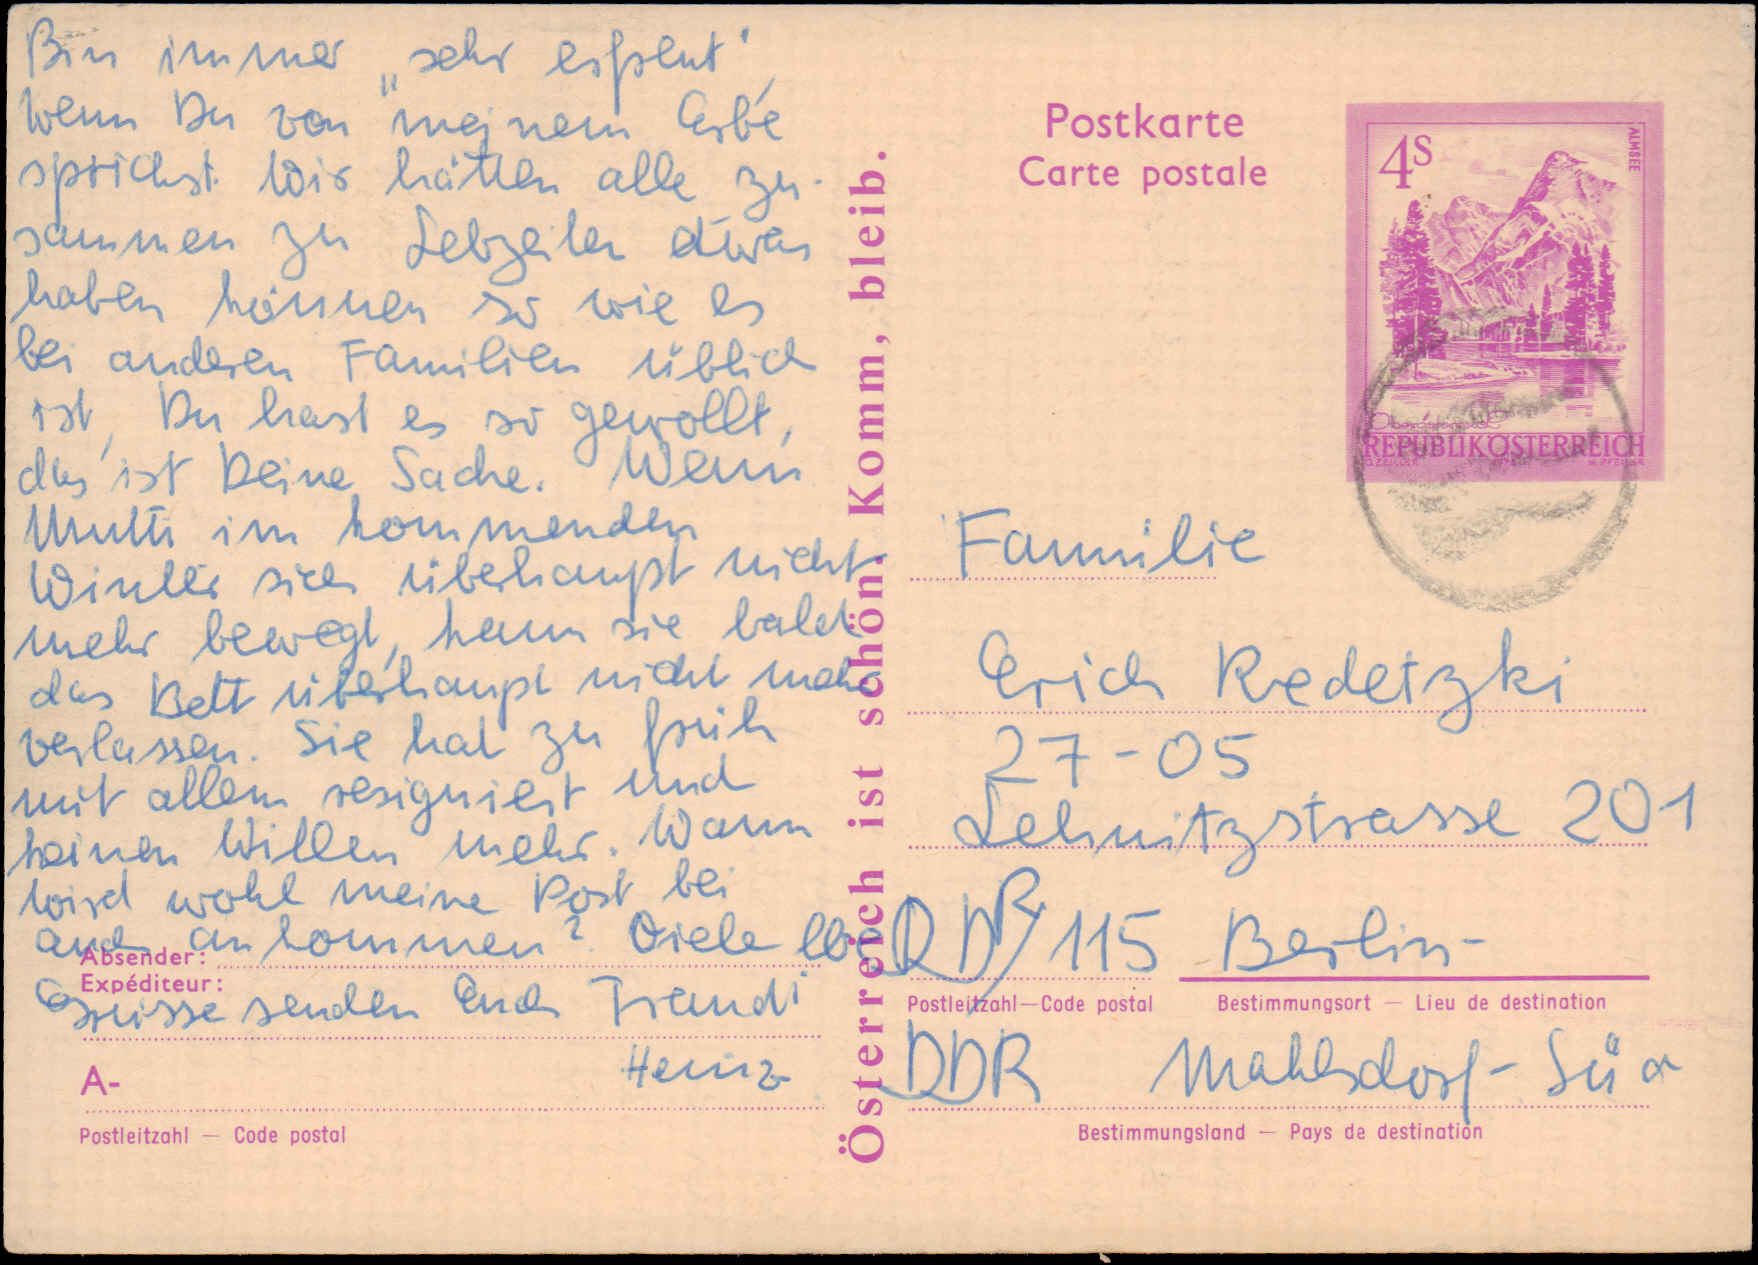 Bin immer „sehr erfreut“,
wenn Du von meinem Erbe
sprichst. Wir hätten alle zu-
sammen zu Lebzeiten etwas
haben können so wie es
bei anderen Familien üblich
ist, Du hast es so gewollt,
das ist Deine Sache. Wenn
Mutti im kommenden
Winter sich überhaupt nicht
mehr bewegt, kann sie bald
das Bett überhaupt nicht mehr
verlassen. Sie hat zu früh
mit allem resigniert und
keinen Willen mehr. Wann
wird wohl meine Post bei
auch ankommen? Viele lbe
Grüsse senden Euch Traudi
Heinz
Absender:
Expéditeur:
A-
Postleitzahl — Code postal
Österreich ist schön. Komm, bleib.
Postkarte
Carte postale
4S
ALMSEE
REPUBLIK ÖSTERREICH
Familie
Erich Redetzki
27-05
Lehnitzstrasse 201
DDR 115 Berlin-
Postleitzahl—Code postal
Bestimmungsort — Lieu de destination
DDR Mahlsdorf-Süd
Bestimmungsland — Pays de destination